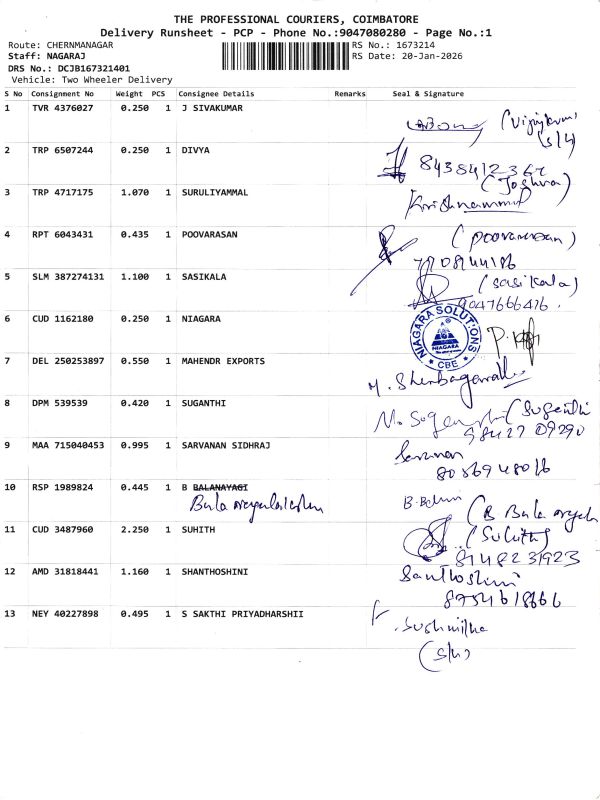 THE PROFESSIONAL COURIERS, COIMBATORE
Delivery Runsheet - PCP - Phone No.:9047080280 - Page No.:1
Route: CHERNMANAGAR RS No.: 1673214
Staff: NAGARAJ RS Date: 20-Jan-2026
DRS No.: DCJB167321401
Vehicle: Two Wheeler Delivery
S No Consignment No Weight PCS Consignee Details Remarks Seal & Signature
1 TVR 4376027 0.250 1 J SIVAKUMAR
(S/L)
2 TRP 6507244 0.250 1 DIVYA
(Joshva)
3 TRP 4717175 1.070 1 SURULIYAMMAL
Krishnammal
4 RPT 6043431 0.435 1 POOVARASAN (poovarasan)
5 SLM 387274131 1.100 1 SASIKALA (sasikala)
9047666416.
6 CUD 1162180 0.250 1 NIAGARA
NIAGARA SOLUTIONS
NIAGARA
* CBE *
7 DEL 250253897 0.550 1 MAHENDR EXPORTS
8 DPM 539539 0.420 1 SUGANTHI
98427 09290
9 MAA 715040453 0.995 1 SARVANAN SIDHRAJ
8056948016
10 RSP 1989824 0.445 1 B BALANAYAGI
11 CUD 3487960 2.250 1 SUHITH (Suhith)
8148231923
12 AMD 31818441 1.160 1 SHANTHOSHINI Santhoshini
8754618666
13 NEY 40227898 0.495 1 S SAKTHI PRIYADHARSHII
Sushmitha